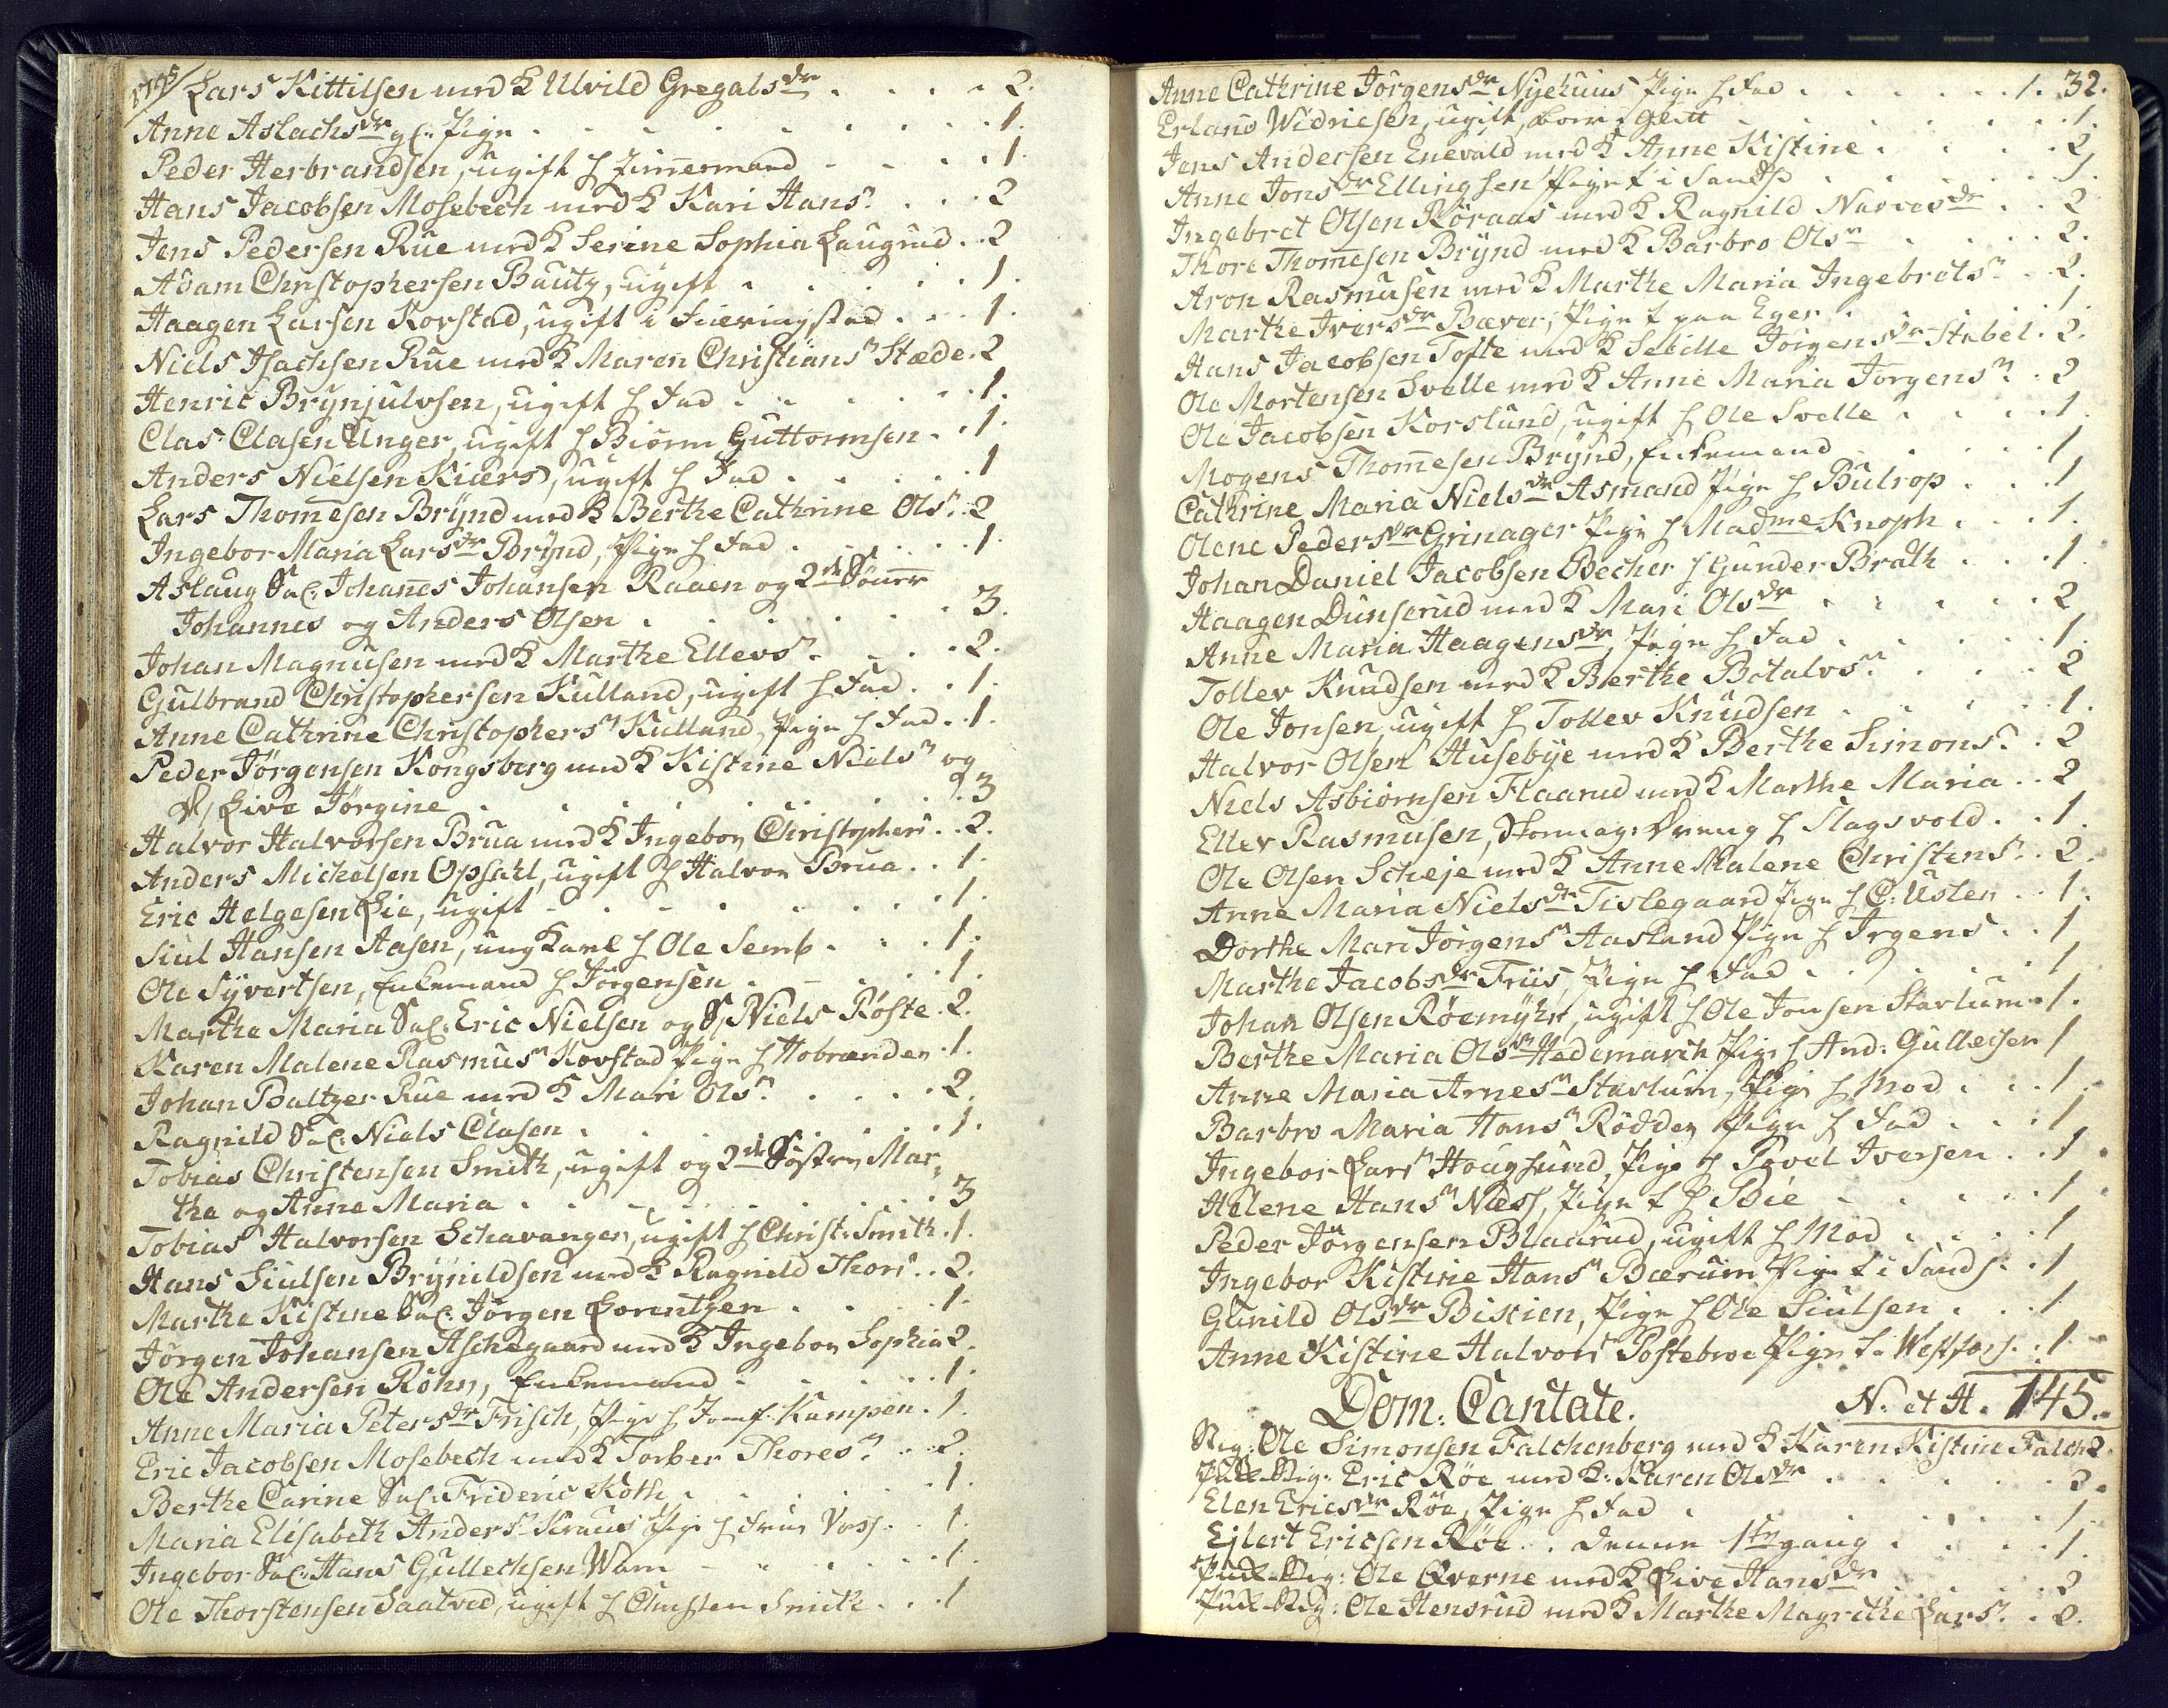 1795/ Lars Kittilsen med K Ulvild Gregalsdr . . . . 2.
Anne Aslachsdr gl: Pige . . . . . . . . 1.
Peder Herbrandsen, ugift h Zimmermand - . . . 1.
Hans Jacobsen Mosebech med K Kari Hans? . . . 2
Jens Pedersen Rue med K Serine Sophia Laugrud . . 2
Adam Christophersen Bautz, ugift . . . . . . 1.
Haagen Larsen Korstad, ugift i . . . 1.
Niels Isachsen Rue med K Maren Christians? Stæde . 2
Henric Brynjulvsen, ugift h Fad . . . . . . 1.
Clas Clasen Unger, ugift h Biørn Guttormsen . . 1.
Anders Nielsen Kiærs, ugift h Fad . . . . . 1
Lars Thomesen Brynd med K Berthe Cathrine Ols? . 2
Ingebor Maria Larsdr Brynd, Pige h Fad . . . . . 1.
Aslaug Sal: Johanes Johansen Raaen og 2de Sønner
Johannes og Anders Olsen . . . . . . 3.
Johan Magnusen med K Marthe Ellevs? . . . . 2.
Gulbrand Christophersen Kulland, ugift h Fad . . 1.
Anne Cathrine Christophers? Kulland, Pige h Fad . . 1.
Peder Jørgensen Kongsberg med K Kistine Niels? og
D, Live Jørgine . . . . . . . 3
Halvor Halvorsen Brua med K Ingebor Christophers . . 2.
Anders Michelsen Opsahl, ugift h Halvor Brua . . 1.
Eric Helgesen Lie, ugift - . . . . . . 1.
Siul Hansen Aasen, ung Karl h Ole Semb . . . 1.
Ole Syvertsen, Enkemand h Jørgensen . - . . . 1.
Marthe Maria Sal: Eric Nielsen og S, Niels Røste . 2.
Karen Malene Rasmus? Korstad Pige h Hobrænder . 1.
Johan Baltzer Rue med K Mari Ols? . . . . . 2.
Ragnild Sal: Niels Clasen . . . . . . . 1.
Tobias Christensen Smith, ugift og 2de Søstre, Mar,
the og Anne Maria . . . . . . . . 3
Tobias Halvorsen Schavanger, ugift h Christ: Smith . 1.
Hans Siulsen Brynildsen med K Ragnild Thors . . 2.
Marthe Kistine Sal: Jørgen Lorentzen . . . . 1.
Jørgen Johansen Aschegaard med K Ingebor Sophia 2.
Ole Andersen Røhn, Enkemand . . . . . 1.
Anne Maria Petersdr Frisch, Pige h Jomf: Kampen . 1.
Eric Jacobsen Mosebech med K Torber Thores? . . 2.
Berthe Carine Sal: Frideric Koth . . . . . 1.
Maria Elisabeth Anders? Kraus Pige h Frue Voss . . 1.
Ingebor Sal: Hans Gullechsen Warn - . . . . 1.
Ole Thorstensen Saatved, ugift h Christen Smith . . . 1
Anne Cathrine Jørgensdr Nyehuus Pige h Fad . . . . . . 1. 32.
Erland Widriesen, ugift, Glitt . . . . . . 1.
Jens Andersen Enevald med K Anne Kistine . . . . 2.
Anne Jonsdr Ellingsen Pige t i Sandsv . . . . 1.
Ingebret Olsen Røraas med K Ragnild Narvesdr . . 2.
Thore Thomesen Brynd med K Barbro Ols? . . . . 2.
Aron Rasmusen med K Marthe Maria Ingebrets? . . 2.
Marthe Iversdr Bæver, Pige t paa Eger . . . . 1.
Hans Jacobsen Tofte med K Sebille Jørgensdr Stabel . 2.
Ole Mortensen Svelle med K Anne Maria Jørgens? . . 2
Ole Jacobsen Korslund, ugift h Ole Svelle . . . . 1.
Mogens Thomesen Brynd, Enkemand . . . . . 1
Cathrine Maria Nielsdr Asmand Pige h Bulrop . . . 1
Olene Pedersdr Grinager Pige h Madme Knoph . . . 1.
Johan Daniel Jacobsen Becher h Gunder Brath . . . 1.
Haagen Dunserud med K Mari Olsdr . . . . . 2.
Anne Maria Haagensdr, Pige h Fad . . . . . 1.
Tollev Knudsen med K Berthe Botalvs? . . . . . 2
Ole Jonsen, ugift h Tollev Knudsen . . . . . 1.
Halvor Olsen Husebye med K Berthe Simons? . . 2
Niels Asbiørnsen Flaarud med K Marthe Maria . . 2
Ellev Rasmusen, Skomag: Dreng h Slagsvold . . . 1.
Ole Olsen Scheje med K Anne Malene Christens? . . 2.
Anne Maria Nielsdr Tislegaard Pige h C: Uslen . . 1.
Dorthe Mari Jørgens? Aasland Pige h Irgens . . 1
Marthe Jacobsdr Friis, Pige h Fad . . . . . 1
Johan Olsen Røemyhr, ugift h Ole Jonsen Stavlum . 1.
Berthe Maria Ols? Hedemarch Pige h And: Gullecsen 1
Anne Maria Arnes? Stavlum, Pige h Mod . . . 1.
Barbro Maria Hans? Rødden Pige h Fad . . . 1
Ingebor Lars? Hougsund, Pige h Povel Iversen . . 1.
Helene Hans? Næss, Pige t h Bie . . . . . 1.
Peder Jørgensen Blaarud, ugift h Mod . . . . 1
Ingebor Kistine Hans? Bærum Pige t i Sands . . 1
Gunild Olsdr Bistien, Pige h Ole Siulsen . . . 1
Anne Kistine Halvors Postebroe Pige t. Westfoss . . 1
Dom: Cantate. N. et A. 145.
Reg: Ole Simonsen Falchenberg med K Karen Kistine Falch 2.
Reg: Eric Røe med K: Karen Olsdr . . . . . 2.
Elen Ericsdr Røe, Pige h Fad . . . . . . 1.
Ejlert Ericsen Røe . . denne 1te gang . . . . 1.
Reg: Ole Qverne med K Live Hansdr . . . . 2
Reg: Ole Hensrud med K Marthe Magrethe Lars? . . 2.